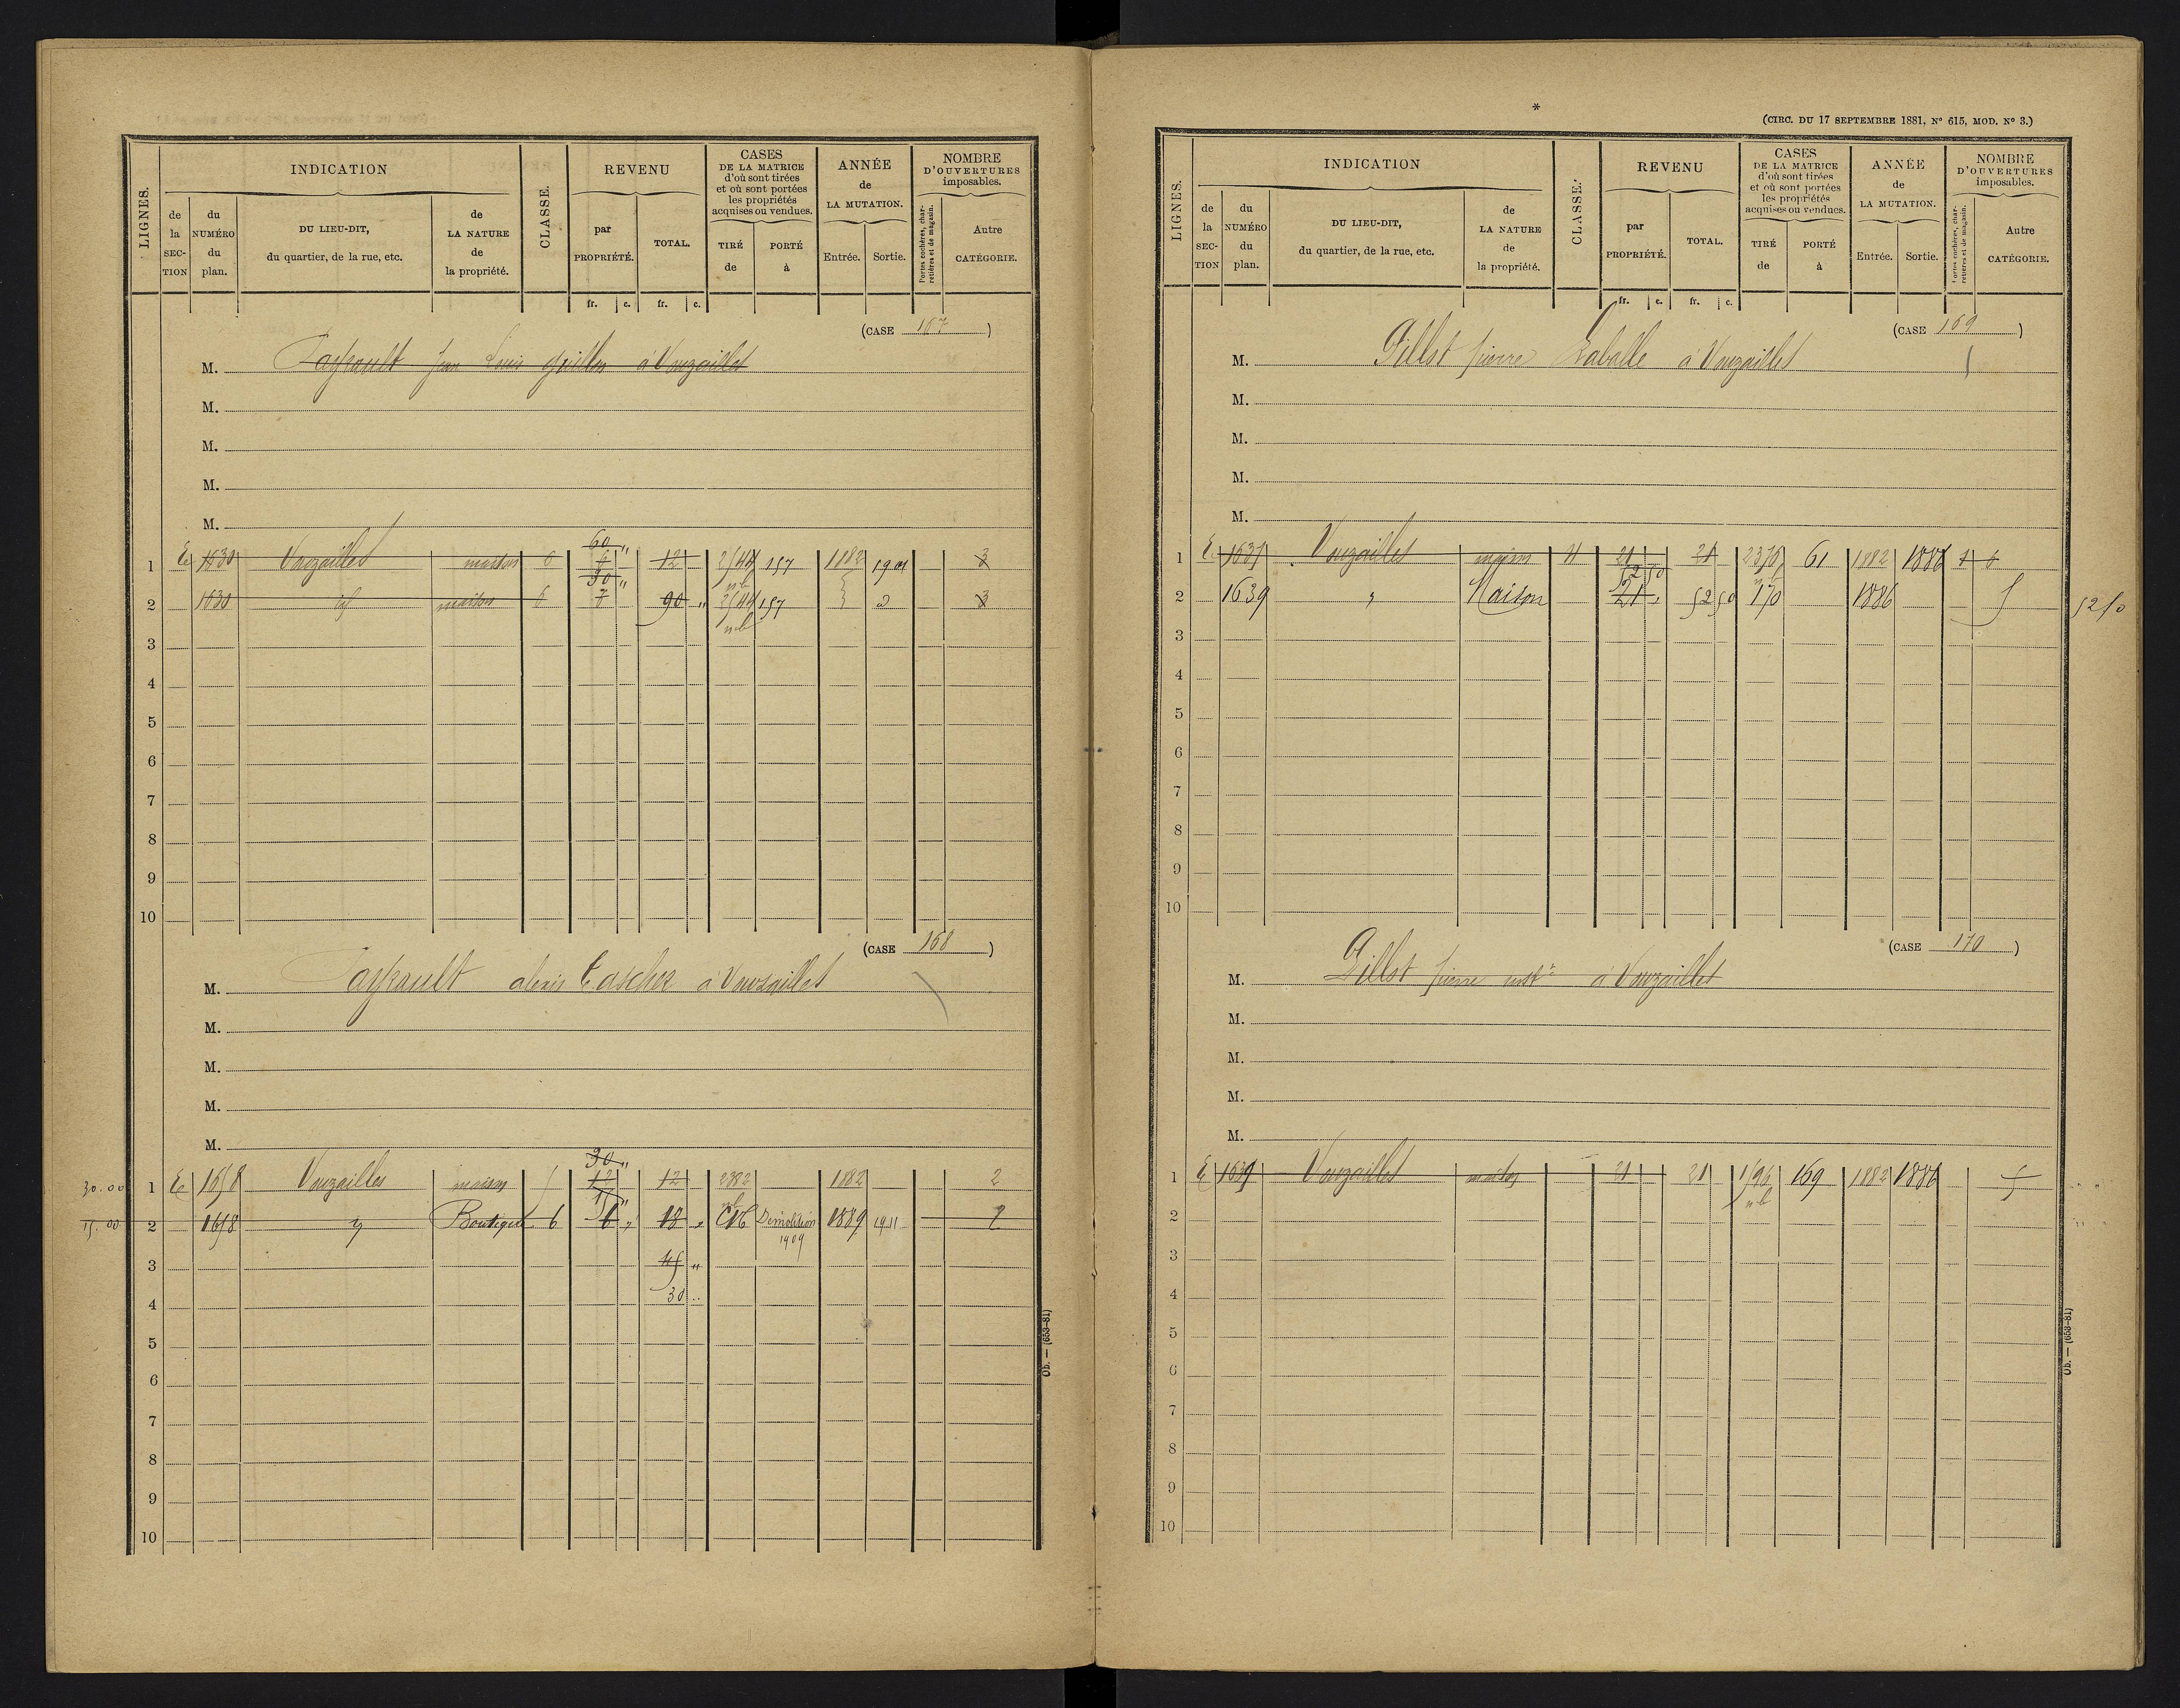 LIGNES.
INDICATION
de la SECTION
du NUMÉRO du plan.
DU LIEU-DIT, du quartier, de la rue, etc.
de LA NATURE de la propriété.
CLASSE.
REVENU
par PROPRIÉTÉ.
TOTAL.
fr. c. fr. c.
CASES DE LA MATRICE d'où sont tirées et où sont portées les propriétés acquises ou vendues.
TIRÉ de
PORTÉ à
ANNÉE de LA MUTATION.
Entrée. Sortie.
NOMBRE D'OUVERTURES imposables.
Portes cochères, charretières et de magasin.
Autre CATÉGORIE.
(CASE 167)
M. Jean Louis à Vouzailles
M.
M.
M.
M.
60 "
1 E 1630 Vouzailles maison 6 6 12 2544 157 1882 1901 3
30 "
2 1630 id maison 6 90 " 2544 157 3
3
4
5
6
7
8
9
10
(CASE 168)
M. alexis à Vouzailles
M.
M.
M.
M.
30 "
30.00 1 E 1658 Vouzailles maison 5 12 12 2382 1882 2
15.00 2 1658 Boutique 6 6 " 18 " Démolition 1909 1889 1911
3 45 "
4 30 ..
5
6
7
8
9
10
Ob. — (653-81)
*
(CIRC. DU 17 SEPTEMBRE 1881, N° 615, MOD. N° 3.)
LIGNES.
INDICATION
de la SECTION
du NUMÉRO du plan.
DU LIEU-DIT, du quartier, de la rue, etc.
de LA NATURE de la propriété.
CLASSE.
REVENU
par PROPRIÉTÉ.
TOTAL.
fr. c. fr. c.
CASES DE LA MATRICE d'où sont tirées et où sont portées les propriétés acquises ou vendues.
TIRÉ de
PORTÉ à
ANNÉE de LA MUTATION.
Entrée. Sortie.
NOMBRE D'OUVERTURES imposables.
Portes cochères, charretières et de magasin.
Autre CATÉGORIE.
(CASE 169)
M. Pillot pierre à Vouzailles
M.
M.
M.
M.
1 E Vouzailles maison 4 21 21 61 1882 1886 1 6
52 50
2 1639 " Maison 21 " 52 50 170 1886 5 52 50
3
4
5
6
7
8
9
10
(CASE 170)
M. Pillot pierre à Vouzailles
M.
M.
M.
M.
1 E 1639 Vouzailles maison 21 21 1596 169 1882 1886 5
2
3
4
5
6
7
8
9
10
Ob. — (653-81)